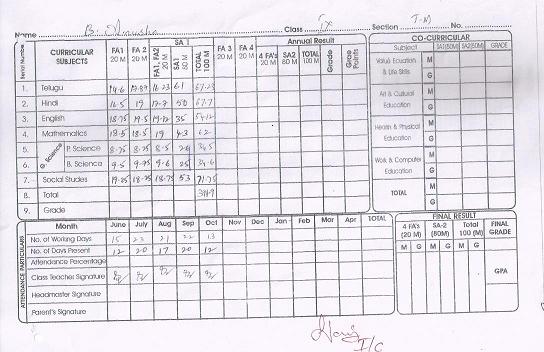 Name B. Anusha Class IX Section I-M No.
Serial Number CURRICULAR SUBJECTS FA1 20 M FA 2 20 M SA 1 FA1, FA2 20 M SA1 80 M TOTAL 100 M FA 3 20 M FA 4 20 M Annual Result 4 FA's 20 M SA2 80 M TOTAL 100 M Grade Grade Points
1. Telugu 61 67-23
2. Hindi 16.5 19 50 67-7
3. English 18.75 35
4. Mathematics 18.5 18.5 19 43 62
G. Science
5. P. Science 8-75 8-5
6. B. Science 9-5 9-75 9-6 25 34-6
7. Social Studes 19-25 18-75 18-75 53 71-75
8. Total
9. Grade
CO-CURRICULAR
Subject SA1(50M) SA2(50M) GRADE
Value Eucation & Life Skills M G
Art & Cultural Education M G
Health & Physical Education M G
Work & Computer Education M G
TOTAL M G
ATTENDANCE PARTICULARS
Month June July Aug Sep Oct Nov Dec Jan Feb Mar Apr TOTAL
No. of Working Days 15 23 21 22 13
No. of Days Present 12 20 17 20 12
Attendance Percentage
Class Teacher Signature
Headmaster Signature
Parent's Signature
FINAL RESULT
4 FA's (20 M) SA-2 (80M) Total 100 (M) FINAL GRADE
M G M G M G
GPA
I/C